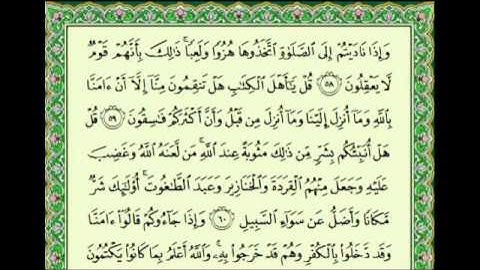 وَإِذَا نَادَيْتُمْ إِلَى ٱلصَّلَوٰةِ ٱتَّخَذُوهَا هُزُوًا وَلَعِبًا ۚ ذَٰلِكَ بِأَنَّهُمْ قَوْمٌ
لَّا يَعْقِلُونَ ٥٨ قُلْ يَٰٓأَهْلَ ٱلْكِتَٰبِ هَلْ تَنقِمُونَ مِنَّآ إِلَّآ أَنْ ءَامَنَّا
بِٱللَّهِ وَمَآ أُنزِلَ إِلَيْنَا وَمَآ أُنزِلَ مِن قَبْلُ وَأَنَّ أَكْثَرَكُمْ فَٰسِقُونَ ٥٩ قُلْ
هَلْ أُنَبِّئُكُم بِشَرٍّ مِّن ذَٰلِكَ مَثُوبَةً عِندَ ٱللَّهِ ۚ مَن لَّعَنَهُ ٱللَّهُ وَغَضِبَ
عَلَيْهِ وَجَعَلَ مِنْهُمُ ٱلْقِرَدَةَ وَٱلْخَنَازِيرَ وَعَبَدَ ٱلطَّٰغُوتَ ۚ أُو۟لَٰٓئِكَ شَرٌّ
مَّكَانًا وَأَضَلُّ عَن سَوَآءِ ٱلسَّبِيلِ ٦٠ وَإِذَا جَآءُوكُمْ قَالُوٓا۟ ءَامَنَّا
وَقَد دَّخَلُوا۟ بِٱلْكُفْرِ وَهُمْ قَدْ خَرَجُوا۟ بِهِۦ ۚ وَٱللَّهُ أَعْلَمُ بِمَا كَانُوا۟ يَكْتُمُونَ